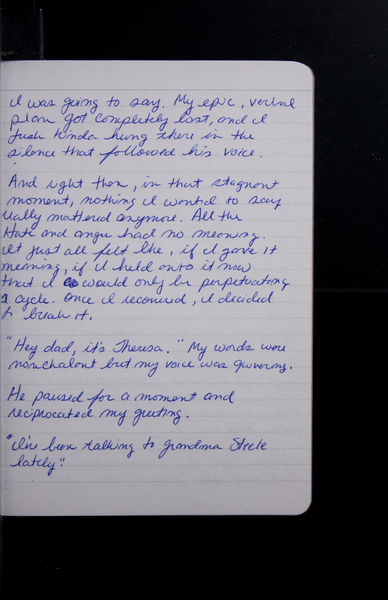 I was going to say. My epic, verbal
plan got completely lost, and I
just kinda hung there in the
silence that followed his voice.
And right then, in that stagnant
moment, nothing I wanted to say
really mattered anymore. All the
Hate and anger had no meaning.
It just all felt like, if I gave it
meaning, if I held onto it now
that I would only be perpetuating
a cycle. Once I recovered, I decided
to break it.
"Hey dad, it's Theresa." My words were
nonchalant but my voice was quivering.
He paused for a moment and
reciprocated my greeting.
"I've been talking to grandma Steele
lately."